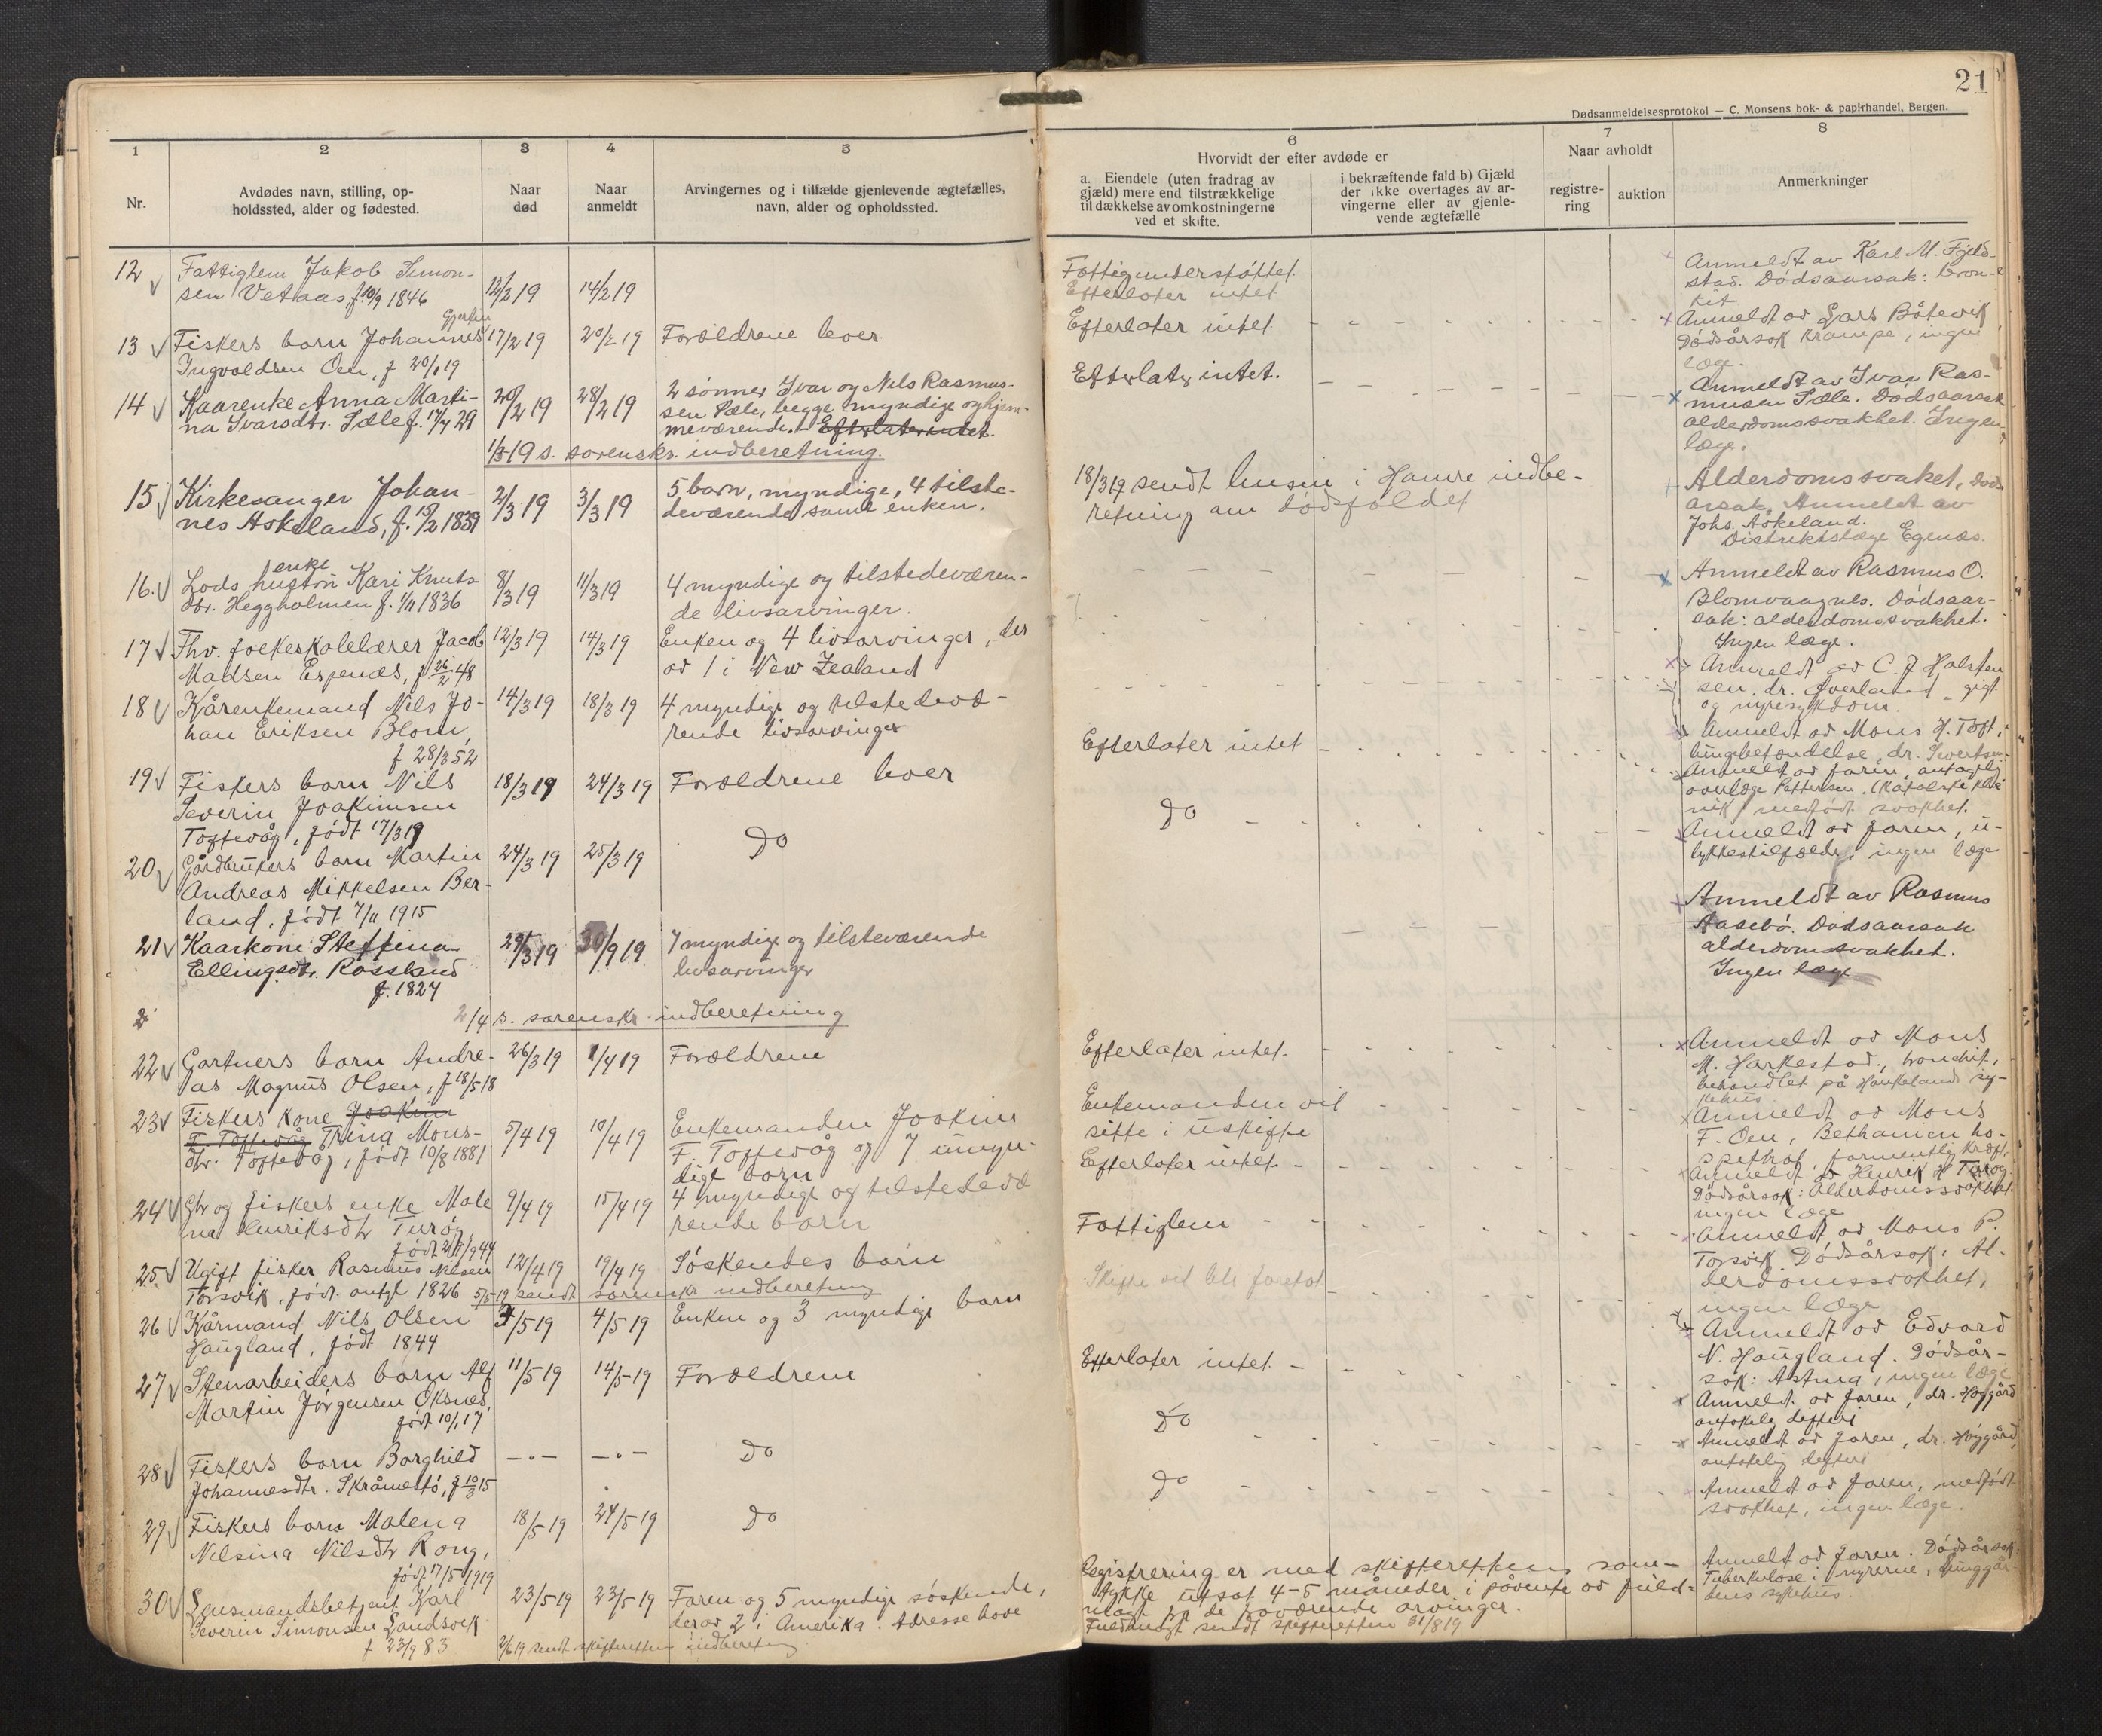 21
Dødsanmeldelsesprotokol — C. Monsens bok- & papirhandel, Bergen.
1
2
3
4
5
6
7
8
Nr.
Avdødes navn, stilling, op-
holdssted, alder og fødested.
Naar
død
Naar
anmeldt
Arvingernes og i tilfælde gjenlevende ægtefælles,
navn, alder og opholdssted.
Hvorvidt der efter avdøde er
a. Eiendele (uten fradrag av
gjæld) mere end tilstrækkelige
til dækkelse av omkostningerne
ved et skifte.
i bekræftende fald b) Gjæld
der ikke overtages av ar-
vingerne eller av gjenle-
vende ægtefælle
Naar avholdt
registre-
ring
auktion
Anmerkninger
12
Fattiglem Jakob Simon-
sen Vetaas, f. 10/9 1846
12/2 19
14/2 19
Fattigunderstøttet.
Efterlater intet.
Anmeldt av Karl M. Fjeld-
stad. Dødsaarsak: bron-
kit
13
Gjertin
Fiskers barn Johannes
Ingvoldsen Oen, f 20/1 19
17/2 19
20/2 19
Forældrene lever
Efterlater intet
Anmeldt av Lars Båtevik
Dødsårsak krampe, ingen
læge.
14
Kaarenke Anna Marti-
na Ivarsdtr. Sæle f. 17/4 29
20/2 19
28/2 19
2 sønner Ivar og Nils Rasmus-
sen Sæle, begge myndige og hjem-
meværende. Efterlater intet.
Efterlater intet.
Anmeldt av Ivar Ras-
musen Sæle. Dødsaarsak
alderdomssvakhet. Ingen
læge.
1/3 19 s. sorenskr. indberetning.
15
Kirkesanger Johan-
nes Askeland, f. 15/2 1839
2/3 19
3/3 19
5 barn, myndige, 4 tilste-
deværende samt enken.
18/3 19 sendt lensm i Hamre indbe-
retning om dødsfaldet
Alderdomssvaket, døds
arsak. Anmeldt av
Johs. Askeland.
Distriktslæge Egenæs.
16.
enke
Lods hustru Kari Knuts-
dtr. Heggholmen f. 1/11 1836
8/3 19
11/3 19
4 myndige og tilstedeværen-
de livsarvinger.
Anmeldt av Rasmus O.
Blomvaagnes. Dødsaar-
sak: alderdomssvakhet.
Ingen læge.
17
Fhv. folkeskolelærer Jacob
Madsen Espenæs, f 26/2 48
12/3 19
14/3 19
Enken og 4 livsarvinger, der
av 1 i New Zealand
Anmeldt av C. J Halsten
sen, dr. Øverland, gigt
og nyresykdom.
18
Kårenkemand Nils Jo-
han Eriksen Blom,
f 28/3 52
14/3 19
18/3 19
4 myndige og tilstedevæ-
rende livsarvinger
Efterlater intet
Anmeldt av Mons H. Toft,
lungebetændelse, dr. Sivertsen
19
Fiskers barn Nils
Severin Joakimsen
Toftevåg, født 17/3 19
18/3 19
24/3 19
Forældrene lever
Do
Anmeldt av faren, antagelig
overlæge Pettersen. (Katolske kli
nik) medfødt svakhet.
20
Gårdbrukers barn Martin
Andreas Mikkelsen Ber-
land, født 7/11 1915
24/3 19
25/3 19
Do
Anmeldt av faren, u-
lykkestilfælde, ingen læge
21
Kaarkone Steffina
Ellingsdtr. Rossland
f. 1827
29/3 19
30/9 19
7 myndige og tilsteværende
livsarvinger
Anmeldt av Rasmus
Aasebø. Dødsaarsak
alderdomssvakhet.
Ingen læge
2
2/4 s. sorenskr. indberetning
22
Gartners barn Andre-
as Magnus Olsen, f 18/5 18
26/3 19
1/4 19
Forældrene
Efterlater intet.
Anmeldt av Mons
M. Harkestad, bronchit,
behandlet på Haukelands sy-
kehus
23
Fiskers kone Joakim
F. Toftevåg Trina Mons-
dtr. Toftevåg, født 10/8 1881
5/4 19
10/4 19
Enkemanden Joakim
F. Toftevåg og 7 umyn-
dige barn
Enkemanden vil
sitte i uskifte
Anmeldt av Mons
F. Oen, Bethanien ho-
spital, formentlig kræft.
24
Gbr og fiskers enke Male
na Henriksdtr Turøy,
født 27/9 44
9/4 19
15/4 19
4 myndige og tilstedevæ
rende barn
Efterlater intet
Anmeldt av Henrik H Turøy
Dødsårsak: Alderdomssvakhet
ingen læge
25.
Ugift fisker Rasmus Nilsen
Torsvik, født antgl 1826
12/4 19
19/4 19
Søskendes barn
Fattiglem
Anmeldt av Mons P.
Torsvik. Dødsårsak: Al-
derdomssvakhet,
ingen læge
5/5 19 sendt sorenskr indberetning
26
Kårmand Nils Olsen
Haugland, født 1844
4/5 19
Enken og 3 myndige barn
Skifte vil bli foretat
Anmeldt av Edvard
N. Haugland. Dødsår-
sak: Astma, ingen læge
27
Stenarbeiders barn Alf
Martin Jørgensen Oksnes,
født 10/1 17
11/5 19
14/5 19
Forældrene
Efterlater intet.
Anmeldt av faren, dr. Høygård
antakelig difteri
28
Fiskers barn Borghild
Johannesdtr. Skråmestø, f 10/3 15
— . —
— . —
Do
Do
Anmeldt av faren, dr. Høygård,
antakelig difteri
29
Fiskers barn Malena
Nilsina Nilsdtr Rong,
født 17/5 1919
18/5 19
24/5 19
Do
Do
Anmeldt av faren, medfødt
svakhet, ingen læge.
30
Lensmandsbetjent Karl
Severin Simonsen Landsvik
f 23/9 83
23/5 19
23/5 19
Faren og 5 myndige søskende,
derav 2 i Amerika. Adresse have
Registrering er med skifterettens sam-
tykke utsat 4-5 måneder i påvente av fuld-
magt fra de fraværende arvinger.
Fuldmagt sendt skifteretten 31/8 19
Anmeldt av faren. Dødsårsak:
Tuberkulose i nyrerne, Lunggår-
dens sykehus.
2/6 19 sendt skifteretten indberetning